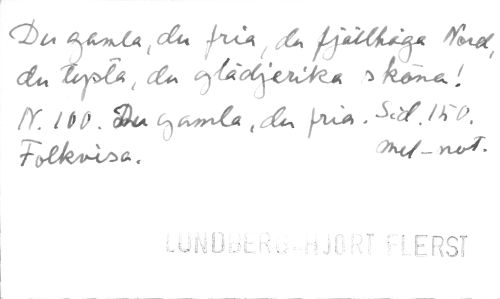 Du gamla, du fria, du fjällhöga Nord,
du tysta, du glädjerika sköna!
N. 100. Du gamla, du fria. Sid. 150.
Folkvisa. mel-not.
LUNDBERG-HJORT FLERST